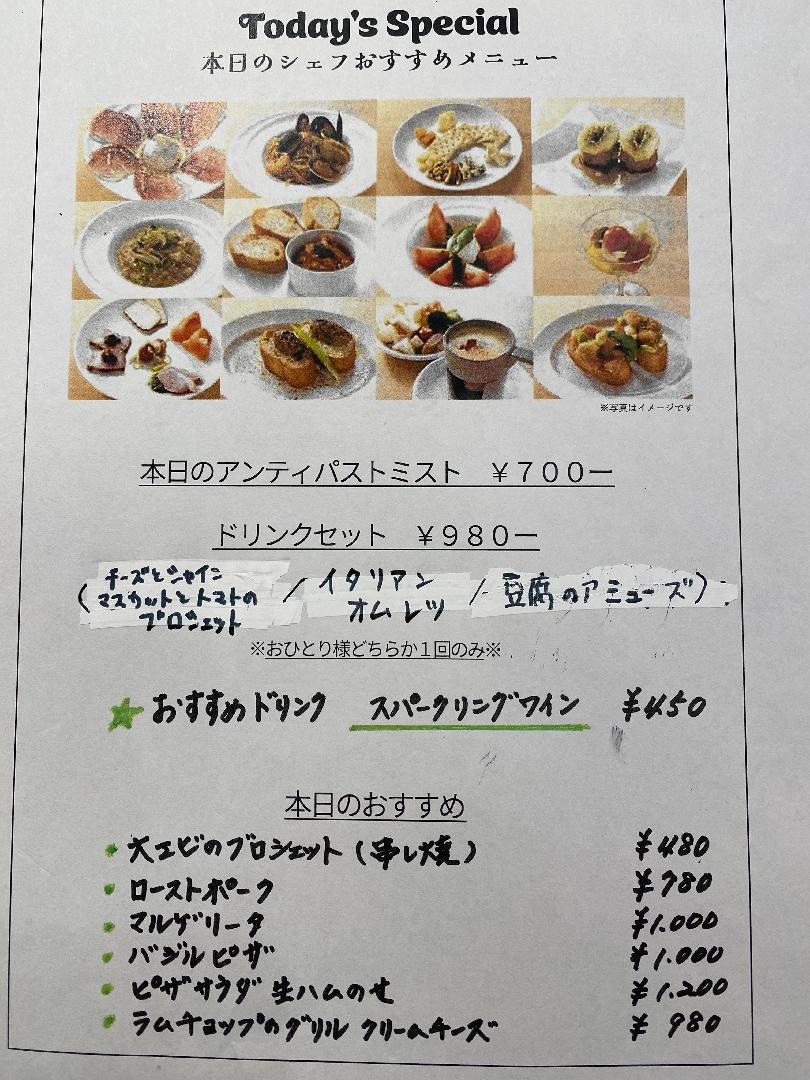 Today's Special
本日のシェフおすすめメニュー
※写真はイメージです
本日のアンティパストミスト　￥７００ー
ドリンクセット　￥９８０ー
(チーズとシャイン
マスカットとトマトの
ブロシェット / イタリアン
オムレツ / 豆腐のアミューズ)
※おひとり様どちらか１回のみ※
★おすすめドリンク　スパークリングワイン　¥450
本日のおすすめ
・大エビのブロシェット(串し焼)　¥480
・ローストポーク　¥780
・マルゲリータ　¥1.000
・バジルピザ　¥1.000
・ピザサラダ 生ハムのせ　¥1.200
・ラムチョップのグリル クリームチーズ　¥980